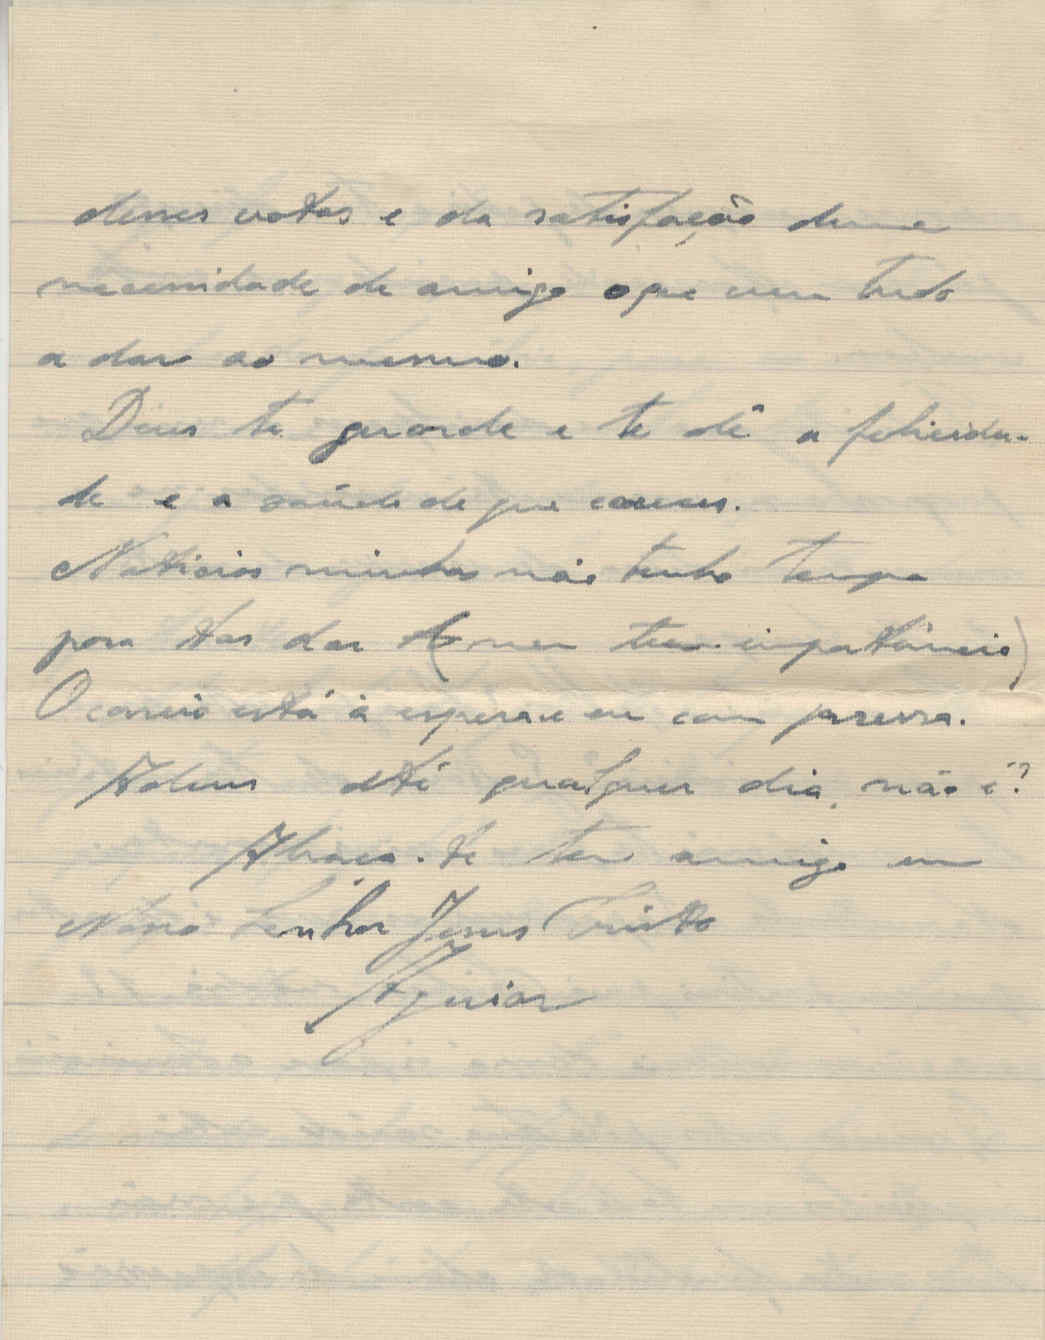 desses votos e da satisfação duma
necessidade de amigo que vem tudo
a dar ao mesmo.
Deus te guarde e te dê a felicida-
de e a saúde de que careces.
Noticias minhas não tenho tempo
para tas dar (nem tem importância)
O correio está à espera e eu com pressa.
Adeus até qualquer dia, não é?
Abraça-te teu amigo em
Nosso Senhor Jesus Cristo
Aguiar